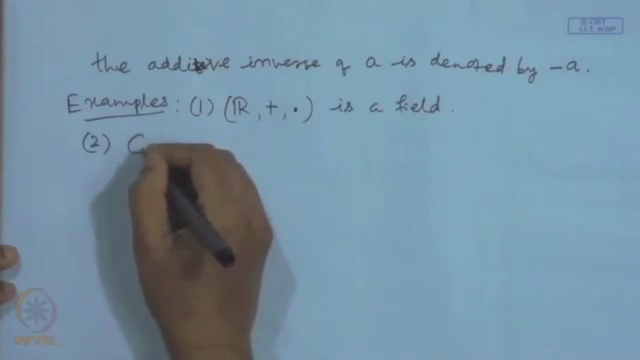 © CET
I.I.T. KGP
the additive inverse of a is denoted by -a.
Examples: (1) (ℝ, +, ·) is a field.
(2) (
NPTEL